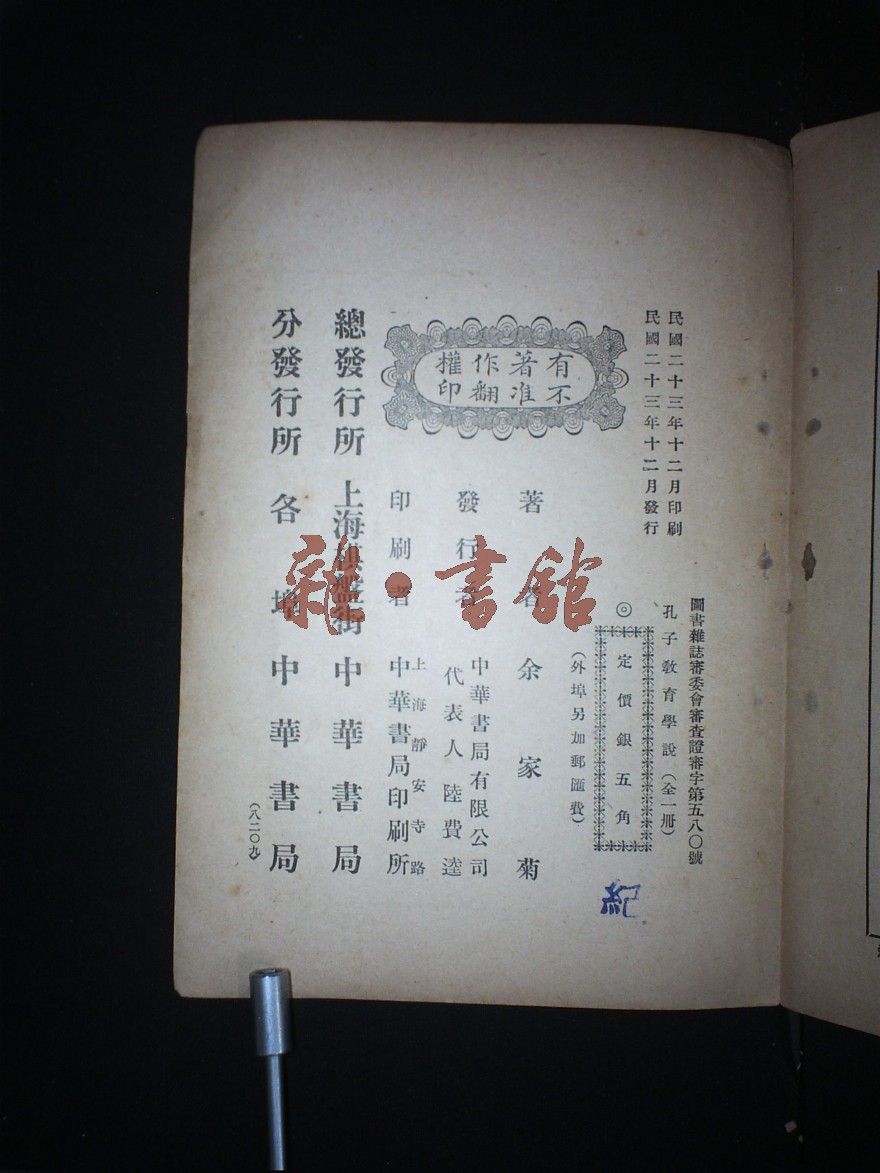 民國二十三年十二月印刷
民國二十三年十二月發行
圖書雜誌審委會審查證審字第五八〇號
孔子教育學說(全一冊)
◎定價銀五角
(外埠另加郵匯費)
有著作權
不准翻印
著者 余家菊
發行者 中華書局有限公司
代表人 陸費逵
印刷者 上海靜安寺路
中華書局印刷所
總發行所 上海棋盤街 中華書局
分發行所 各埠 中華書局
(八二〇九)
紀
雜·書館